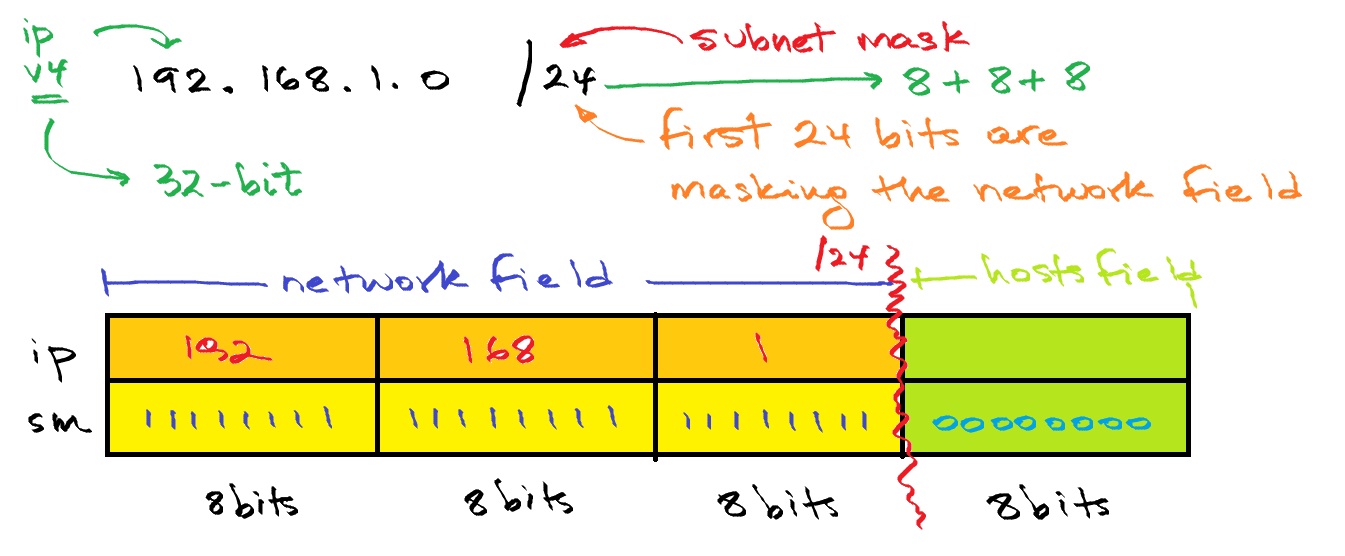 ip
v4
192.168.1.0 /24
subnet mask
8+8+8
first 24 bits are
masking the network field
32-bit
network field
/24
hosts field
ip 192 168 1
sm 11111111 11111111 11111111 00000000
8bits 8bits 8bits 8bits